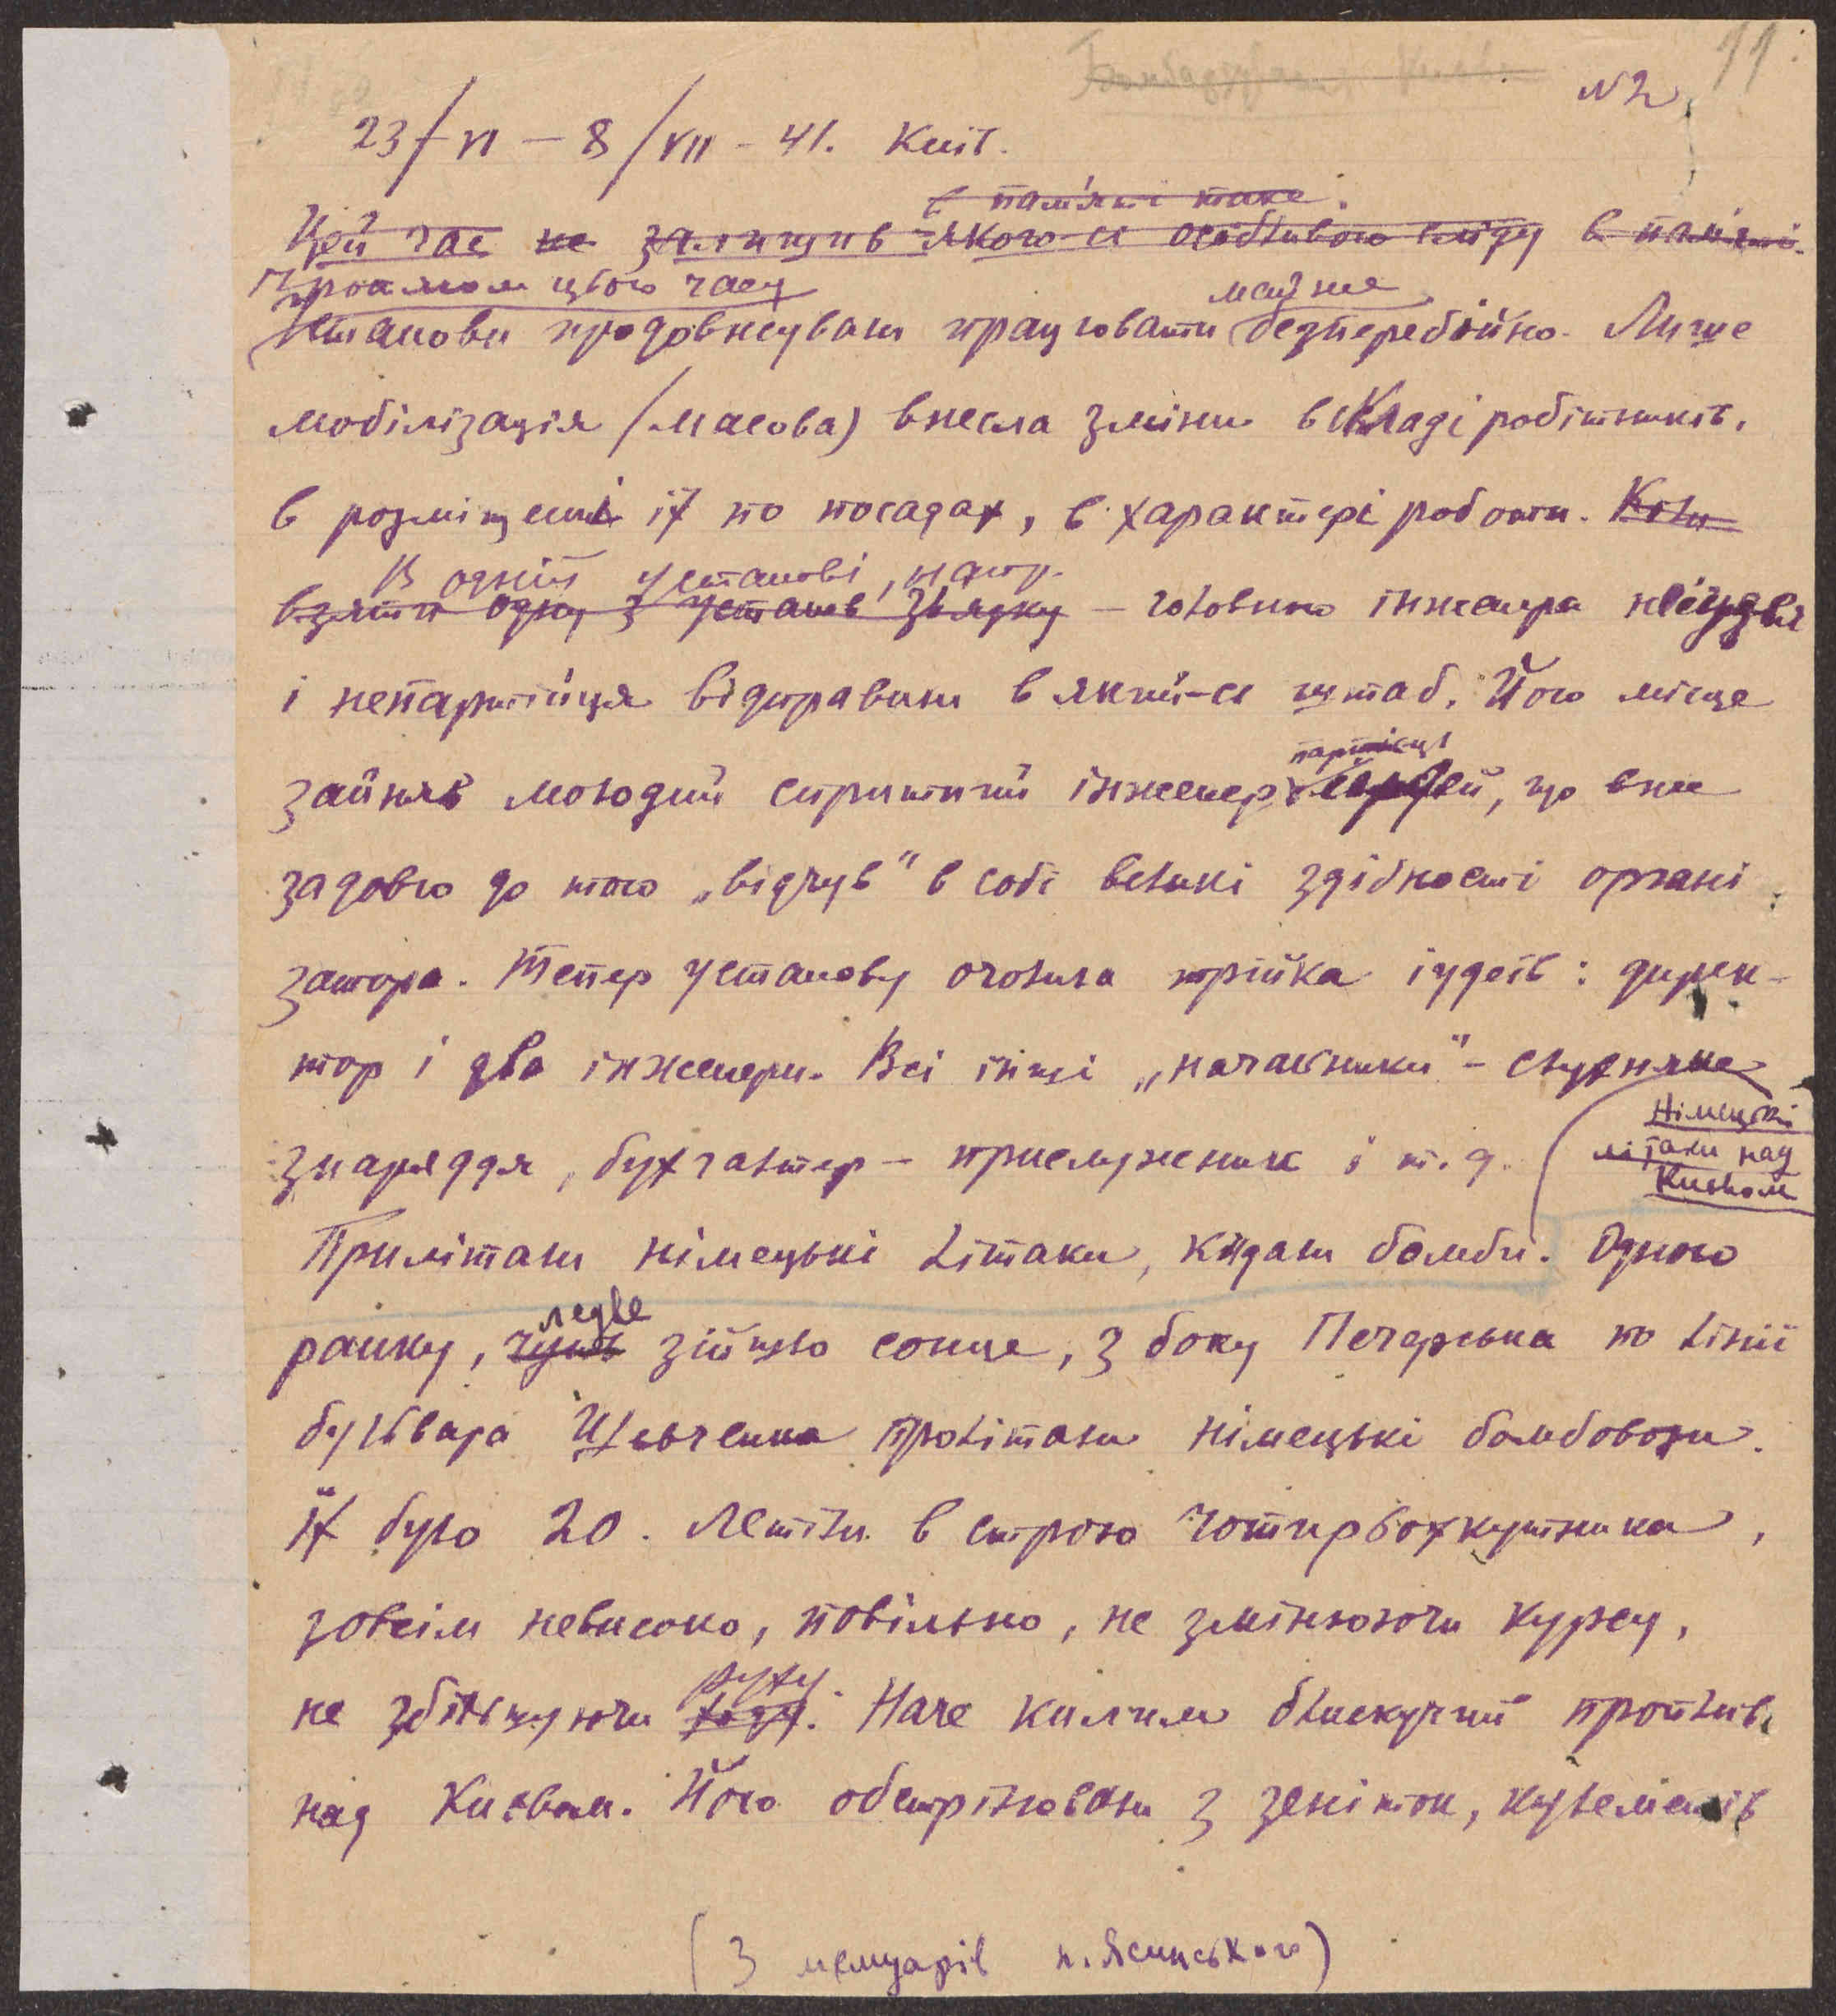 Бомбардування Києва
№2 11.
23/VI – 8/VII – 41. Київ.
в пам'яті таке.
Цей час не залишив якого-сь особливого сліду в пам'яті.
Протягом цього часу майже
Установи продовжували працювати безперебійно. Лише
мобілізація /масова) внесла зміни в складі робітників,
в розміщенні їх по посадах, в характері роботи. Коли
В одній установі, напр.
взяти одну з установ зв'язку – головного інженера неіудея
і непартійця відправили в який-сь штаб. Його місце
партієць
зайняв молодий спритний інженер єврей, що вже
задовго до того „відчув" в собі великі здібності органі
затора. Тепер установу очолила трійка іудеїв: дирек-
тор і два інженери. Всі інші „начальники" – слухняне
Німецькі
літаки над
Києвом
знаряддя, бухгалтер – прислужник і т. д.
Прилітали німецькі літаки, кидали бомби. Одного
ледве
ранку, чуть зійшло сонце, з боку Печерська по лінії
бульвара Шевченка пролітали німецькі бомбовози.
Їх було 20. Летіли в строю чотирьохкутника,
зовсім невисоко, повільно, не змінюючи курсу,
руху.
не збільшуючи ходу. Наче килим блискучий проплив
над Києвом. Його обстрілювали з зеніток, кулеметів
(З мемуарів п. Ясинського)